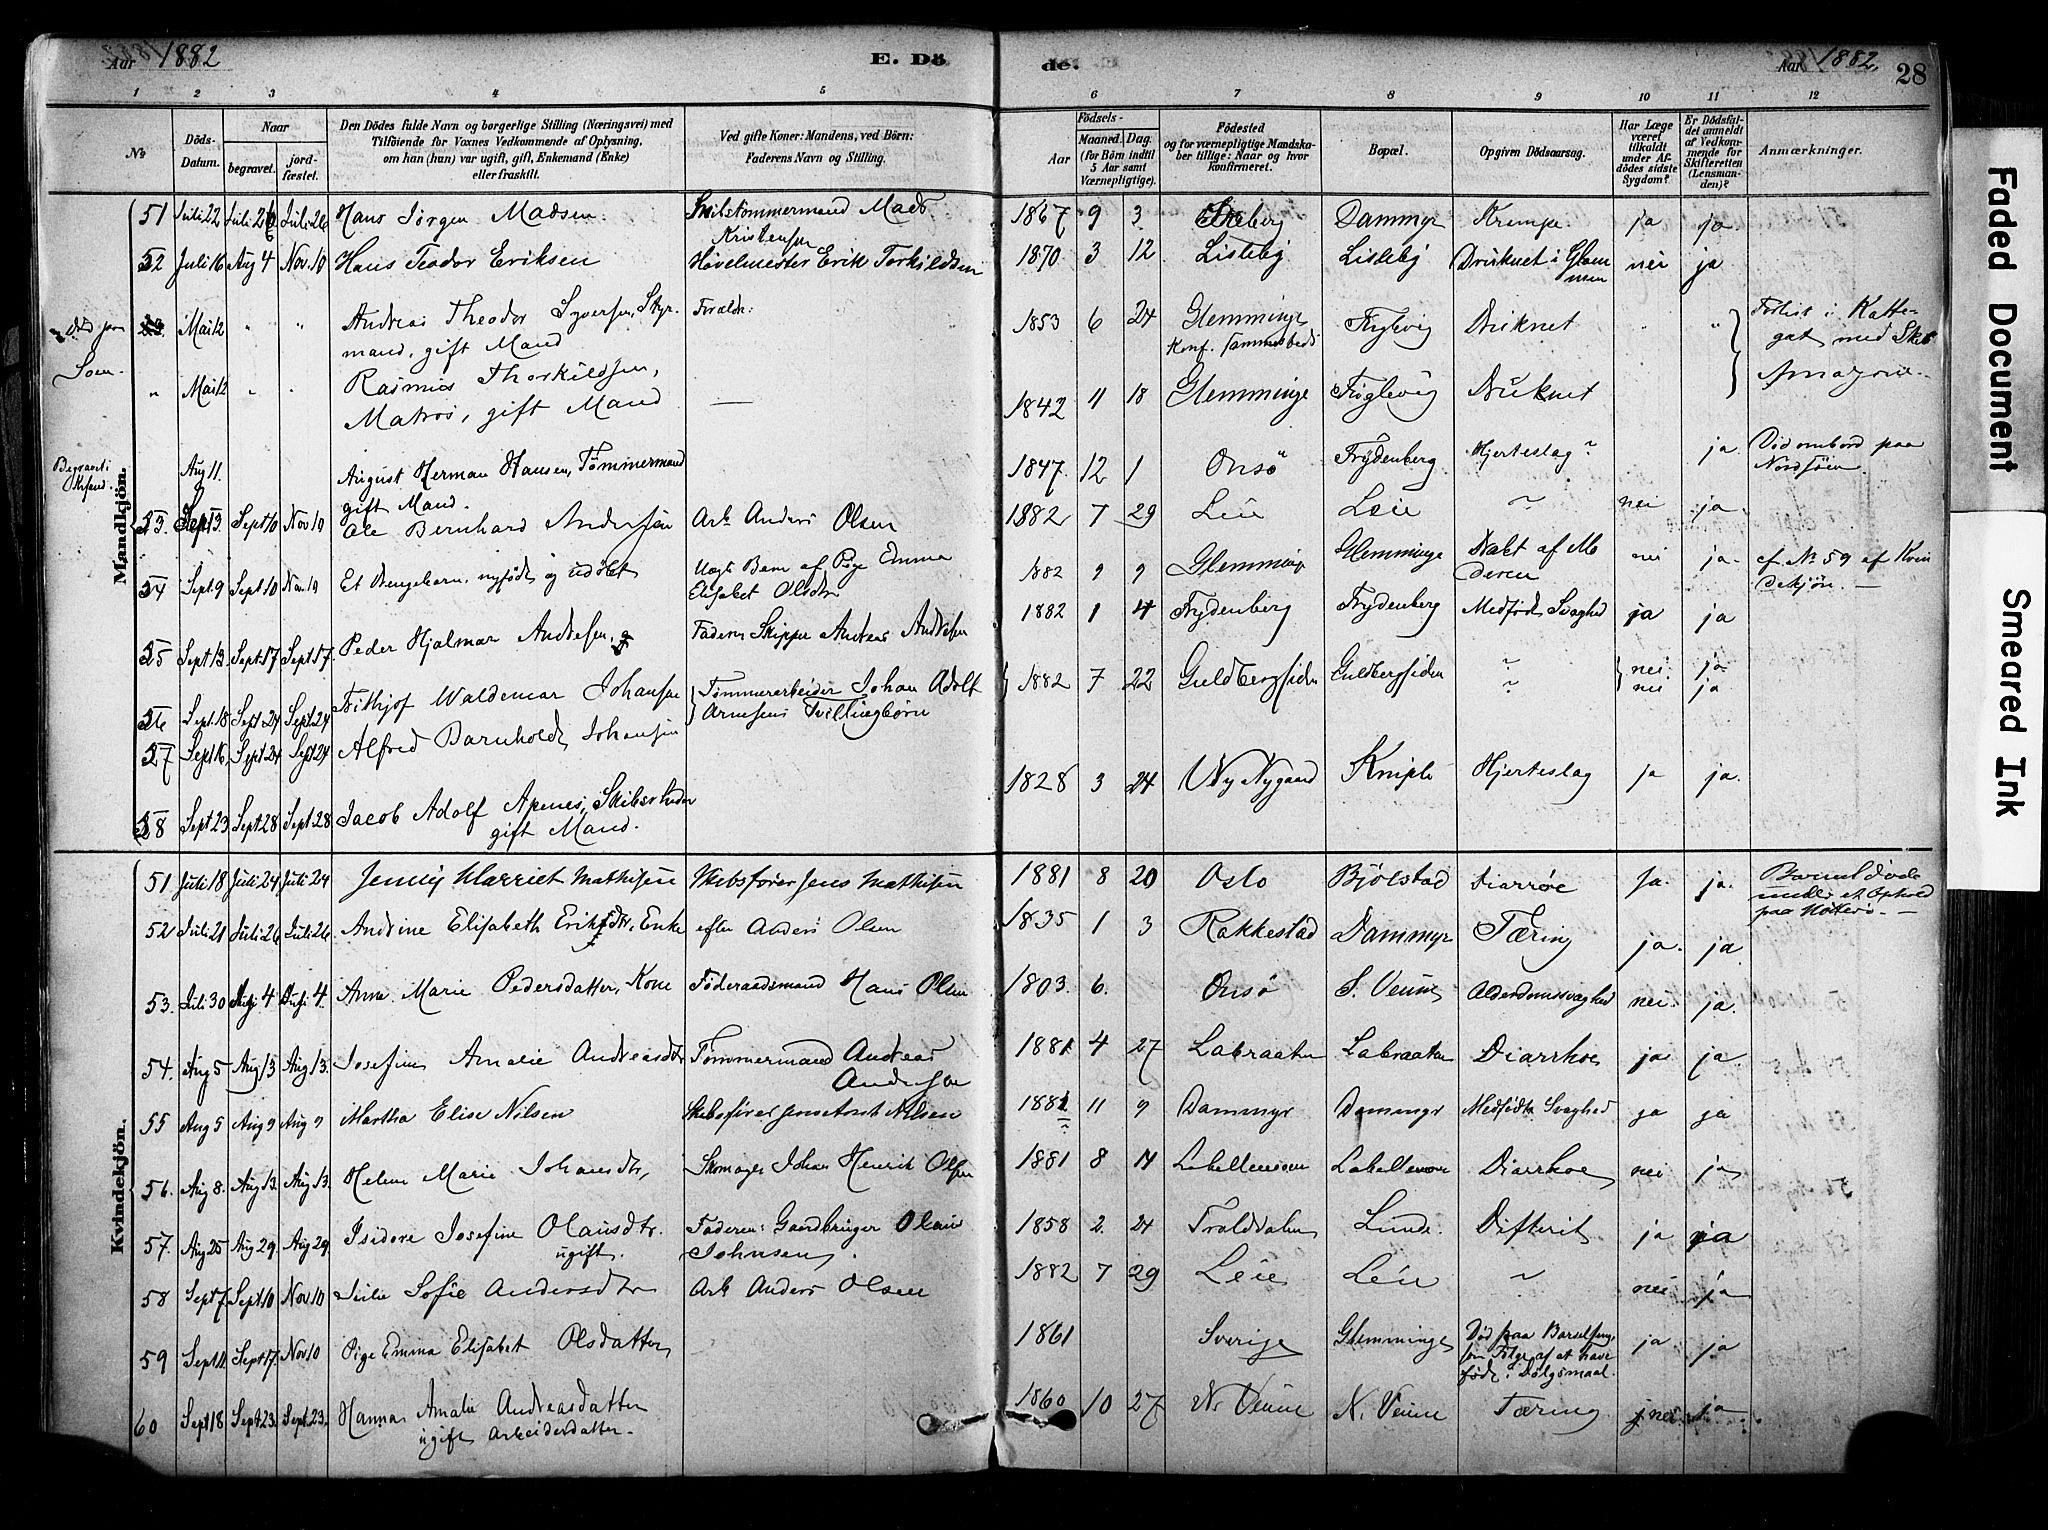 Aar 1882 E. Dö de. Aar 1882. 28
1 2 3 4 5 6 7 8 9 10 11 12
No.
Döds-Datum.
Naar
begravet.
jordfæstet.
Den Dödes fulde Navn og borgerlige Stilling (Næringsvei) med
Tilföiende for Voxnes Vedkommende af Oplysning,
om han (hun) var ugift, gift, Enkemand (Enke)
eller fraskilt.
Ved gifte Koner: Mandens, ved Börn:
Faderens Navn og Stilling.
Födsels-
Aar
Maaned.
Dag.
(for Börn indtil
5 Aar samt
Værnepligtige).
Födested
og for værnepligtige Mandska-
ber tillige: Naar og hvor
konfirmeret.
Bopæl.
Opgiven Dödsaarsag.
Har Læge
været
tilkaldt
under Af-
dödes sidste
Sygdom?
Er Dödsfal-
det anmeldt
af Vedkom-
mende for
Skifteretten
(Lensman-
den)?
Anmærkninger.
Mandkjön.
51 Juli 22 Juli 26 Juli 26 Hans Jörgen Madsen Skibstömmermand Mads 1867 9 3 Dammyr Krampe ja ja
Kristensen
52 Juli 16 Aug 4 Nov. 10 Hans Teodor Eriksen Høvelmester Erik Torkildsen 1870 3 12 Lisleby Lisleby Druknet i Glom- nei ja
men
Mai 12 " " Andreas Theodor Syversen, Styr- Foræld: 1853 6 24 Glemminge Fuglevig Druknet " " Forlist i Katte-
mand, gift Mand Konf. gat med Skib
Soen
" Mai 12 " " Rasmus Thorkildsen, — 1842 11 18 Glemminge Fuglevig Druknet
Matros, gift Mand
Begravet i
Aug 11. August Herman Hansen, Tømmermand 1847 12 1 Onsö Frydenberg Hjerteslag ja Död ombord paa
gift Mand. Nordsöen
53. Sept 3 Sept 10 Nov 10 Ole Bernhard Andersen Arb. Anders Olsen 1882 7 29 Leie Leie ~ nei ja
54 Sept. 9 Sept 10 Nov. 10 Et Drengebarn, nyfødt og udøbt Uægte Barn af Pige Emma 1882 9 9 Glemminge Glemminge Dræbt af Mo nei ja cf. No 59 af Kvin
Elisabet Olsdtr deren dekjøn. —
55 Sept 13 Sept 17 Sept 17. Peder Hjalmar Andresen Faderen Skipper Andreas Andresen 1882 1 4 Frydenberg Frydenberg Medfødt Svaghed ja ja
56 Sept. 18 Sept 24 Sept. 24 Fithjof Waldemar Johansen Tømmerarbeider Johan Adolf 1882 7 22 Guldbergsiden Guldbergsiden ~ nei ja
57 Sept 16 Sept 24 Sept 24 Alfred Barnholdt Johansen Arnesens Tvillingbørn ~ nei ja
58 Sept 23 Sept 28 Sept. 28 Jacob Adolf Apenes, Skibsrheder 1828 3 24 Ny Nygaard Kniple Hjerteslag ja ja
gift Mand.
Kvindekjön.
51 Juli 18 Juli 24 Juli 24 Jenny Harriet Mathisen Skibsfører Jens Mathisen 1881 8 20 Oslo Bjølstad Diarrøe ja. ja Barnet døde
under et Ophold
52 Juli 21 Juli 26 Juli 26 Andrine Elisabeth Eriksdtr, Enke efter Anders Olsen 1835 1 3 Rakkestad Dammyr Tæring ja. ja paa
53. Juli 30 Aug 4 Aug 4. Anne Marie Pedersdatter, Kone Föderaadsmand Hans Olsen 1803. 6. Onsö S. Veum Alderdomssvaghed nei. ja.
54. Aug 5 Aug 13 Aug 13. Josefine Amalie Andreasdtr Tømmermand Andreas 1881 4 27 Labraaten Labraaten Diarrhoe ja ja.
Andersen
55 Aug 5 Aug 9 Aug 9 Martha Elise Nilsen Skibsfører Nilsen 1881 11 9 Dammyr Dammyr Medfødt Svaghed ja ja
56. Aug 8. Aug 13. Aug 13. Helene Marie Johansdtr, Skomager Johan Henrik Olsen 1881 8 Diarrhoe nei ja
57. Aug 25 Aug 29. Aug 29. Isidore Josefine Olausdtr. Faderen: Gaardbruger Olaus 1858 2. 24 Traldalen Lunde. Difterit ja ja
ugift. Johnsen
58 Sept 7 Sept 10 Nov 10 Julie Sofie Andersdtr Arb Anders Olsen 1882 7 29 Leie Leie ~ nei ja
59 Sept 11. Sept 17. Nov 10 Pige Emma Elisabet Olsdatter 1861 Sverige Glemminge Død paa Barselseng ja ja
som Følge af at have
født i Dølgsmaal
60 Sept 18. Sept. 23. Sept. 23. Hanna Amalie Andreasdatter 1860 10 27 N. Veum N. Veum Tæring nei ja
ugift Arbeiderdatter.
Faded Document
Smeared Ink